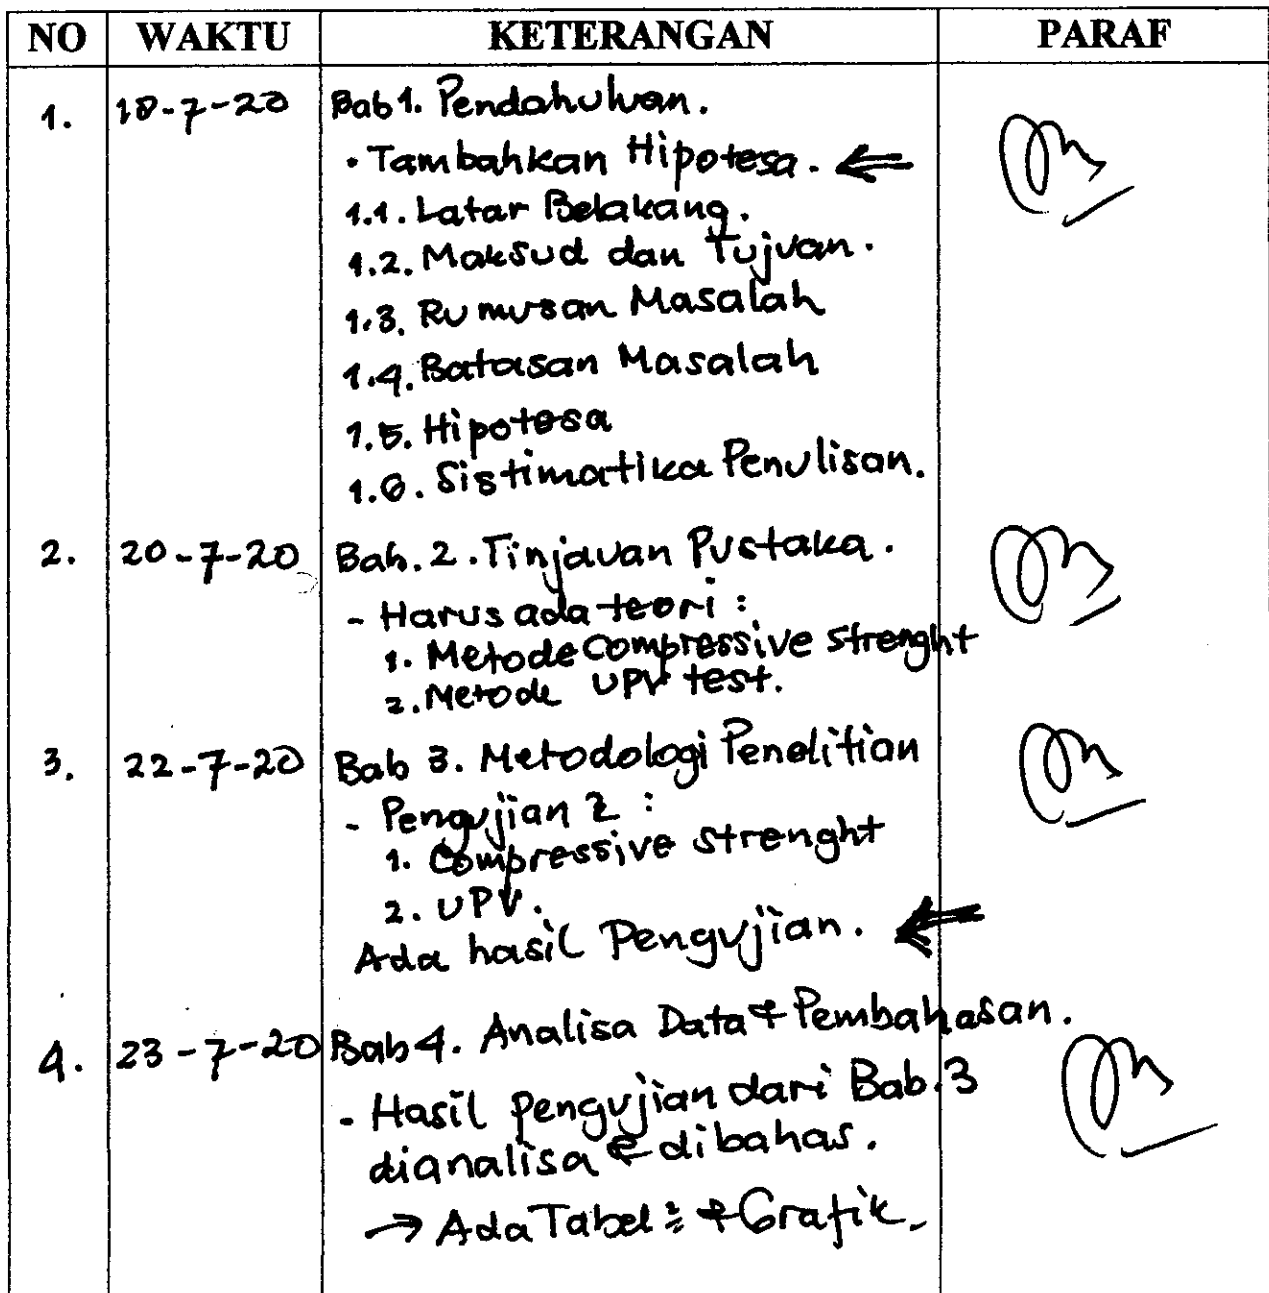 NO WAKTU KETERANGAN PARAF
1. 18-7-20 Bab 1. Pendahuluan.
• Tambahkan Hipotesa. ⇐
1.1. Latar Belakang.
1.2. Maksud dan Tujuan.
1.3. Rumusan Masalah
1.4. Batasan Masalah
1.5. Hipotesa
1.6. Sistimatika Penulisan.
2. 20-7-20 Bab. 2. Tinjauan Pustaka.
- Harus ada teori :
1. Metode Compressive strenght
2. Metode UPV test.
3. 22-7-20 Bab 3. Metodologi Penelitian
- Pengujian 2 :
1. Compressive strenght
2. UPV.
Ada hasil Pengujian. ⇐
4. 23-7-20 Bab 4. Analisa Data & Pembahasan.
- Hasil Pengujian dari Bab. 3
dianalisa & dibahas.
→ Ada Tabel & Grafik.